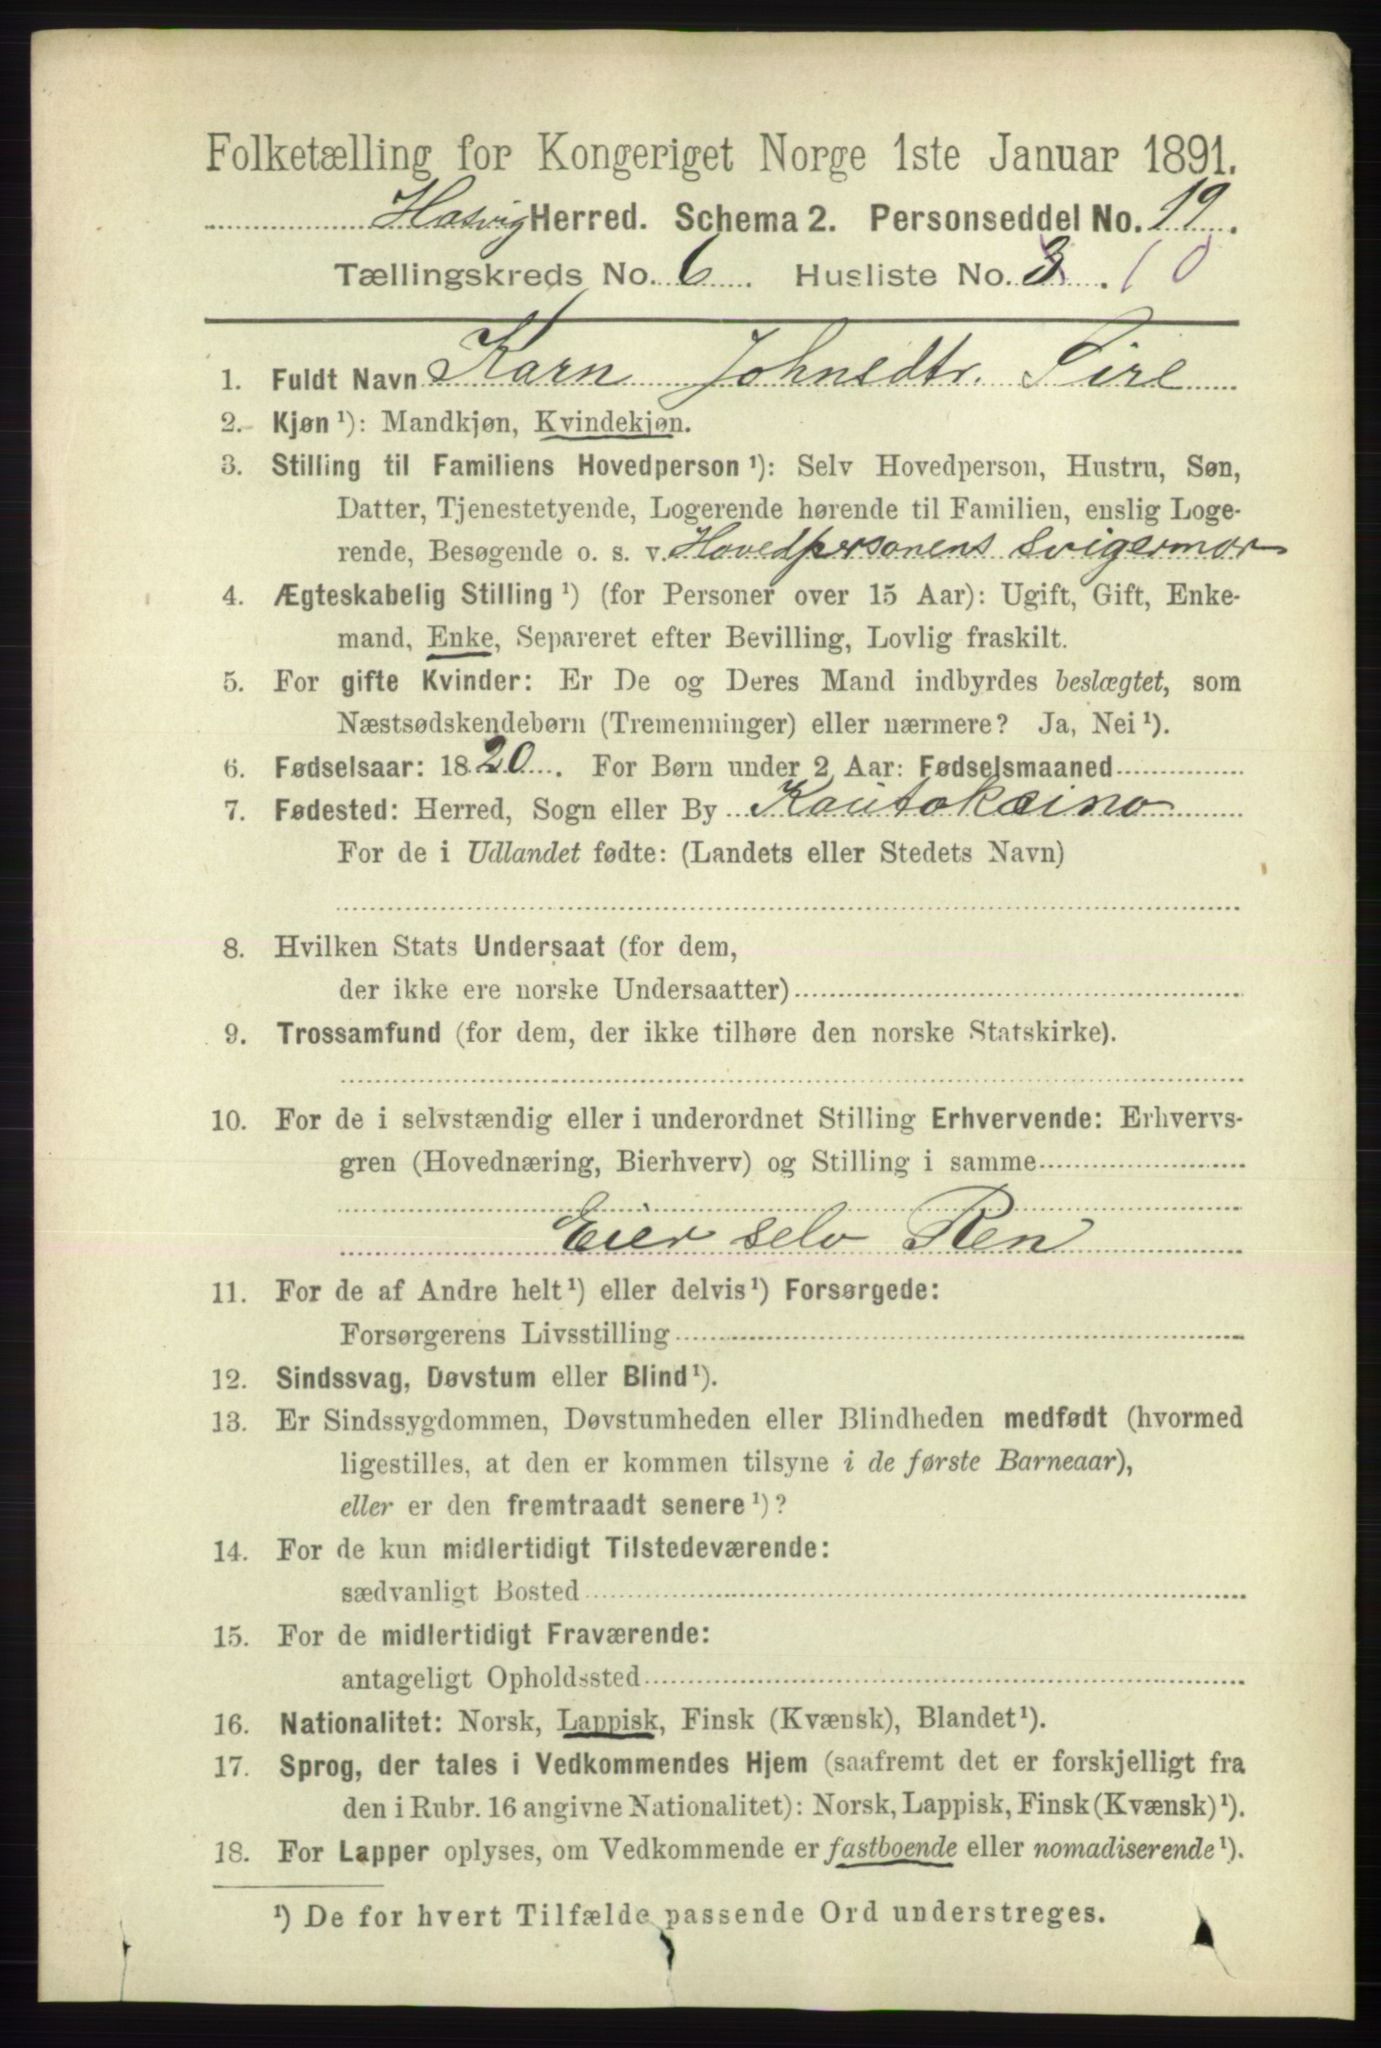 Folketælling for Kongeriget Norge 1ste Januar 1891.
Hasvig Herred. Schema 2. Personseddel No. 19.
Tællingskreds No. 6. Husliste No. 3. 10
1. Fuldt Navn Karn Johnsdtr. Sire
2. Kjøn¹): Mandkjøn, Kvindekjøn.
3. Stilling til Familiens Hovedperson¹): Selv Hovedperson, Hustru, Søn,
Datter, Tjenestetyende, Logerende hørende til Familien, enslig Loge-
rende, Besøgende o. s. v. Hovedpersonens Svigermor
4. Ægteskabelig Stilling¹) (for Personer over 15 Aar): Ugift, Gift, Enke-
mand, Enke, Separeret efter Bevilling, Lovlig fraskilt.
5. For gifte Kvinder: Er De og Deres Mand indbyrdes beslægtet, som
Næstsødskendebørn (Tremenninger) eller nærmere? Ja, Nei¹).
6. Fødselsaar: 1820. For Børn under 2 Aar: Fødselsmaaned
7. Fødested: Herred, Sogn eller By Koutokæino
For de i Udlandet fødte: (Landets eller Stedets Navn)
8. Hvilken Stats Undersaat (for dem,
der ikke ere norske Undersaatter)
9. Trossamfund (for dem, der ikke tilhøre den norske Statskirke).
10. For de i selvstændig eller i underordnet Stilling Erhvervende: Erhvervs-
gren (Hovednæring, Bierhverv) og Stilling i samme
Eier selv Ren
11. For de af Andre helt¹) eller delvis¹) Forsørgede:
Forsørgerens Livsstilling
12. Sindssvag, Døvstum eller Blind¹).
13. Er Sindssygdommen, Døvstumheden eller Blindheden medfødt (hvormed
ligestilles, at den er kommen tilsyne i de første Barneaar),
eller er den fremtraadt senere¹)?
14. For de kun midlertidigt Tilstedeværende:
sædvanligt Bosted
15. For de midlertidigt Fraværende:
antageligt Opholdssted
16. Nationalitet: Norsk, Lappisk, Finsk (Kvænsk), Blandet¹).
17. Sprog, der tales i Vedkommendes Hjem (saafremt det er forskjelligt fra
den i Rubr. 16 angivne Nationalitet): Norsk, Lappisk, Finsk (Kvænsk)¹).
18. For Lapper oplyses, om Vedkommende er fastboende eller nomadiserende¹).
¹) De for hvert Tilfælde passende Ord understreges.